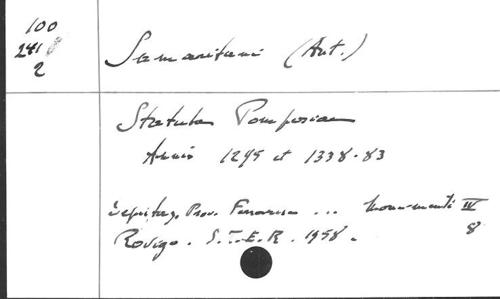 100
241
2
Samaritani (Ant.)
Statuta Pomposiae
Annis 1295 et 1338-83
Deputaz. Prov. Ferrarese ... Monumenti IV
8
Rovigo. S.T.E.R. 1958.